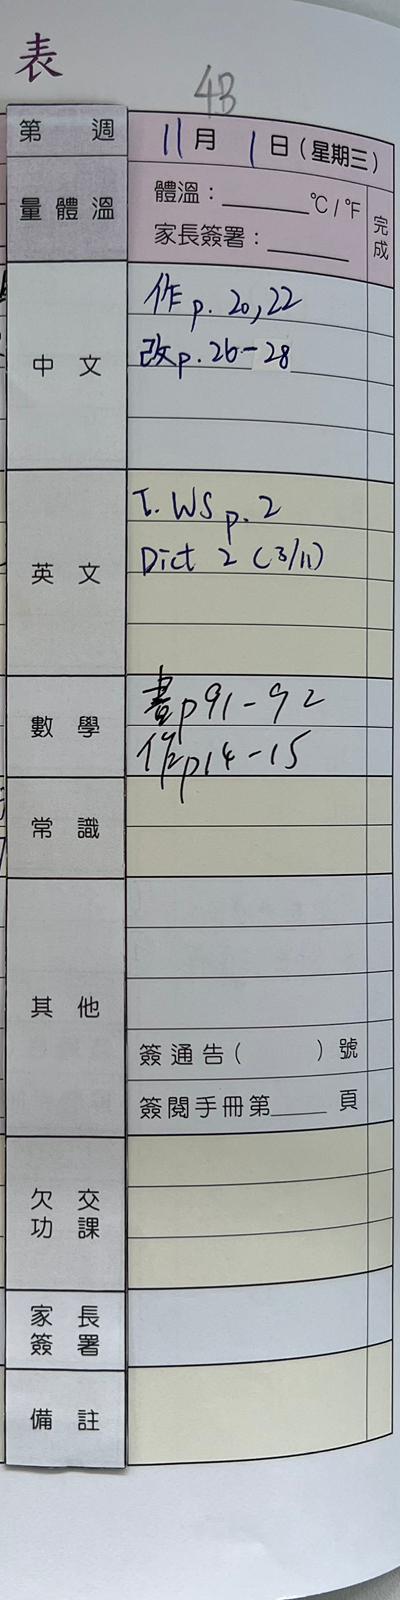 表
4B
第 週 11月 1日(星期三)
量體溫 體溫:______°C / °F 完成
家長簽署:______
中文 作p. 20,22
改p. 26-28
英文 T. WS p. 2
Dict 2 (3/11)
數學 書p91-92
作p14-15
常識
其他
簽通告( )號
簽閱手冊第____頁
欠交功課
家長簽署
備註